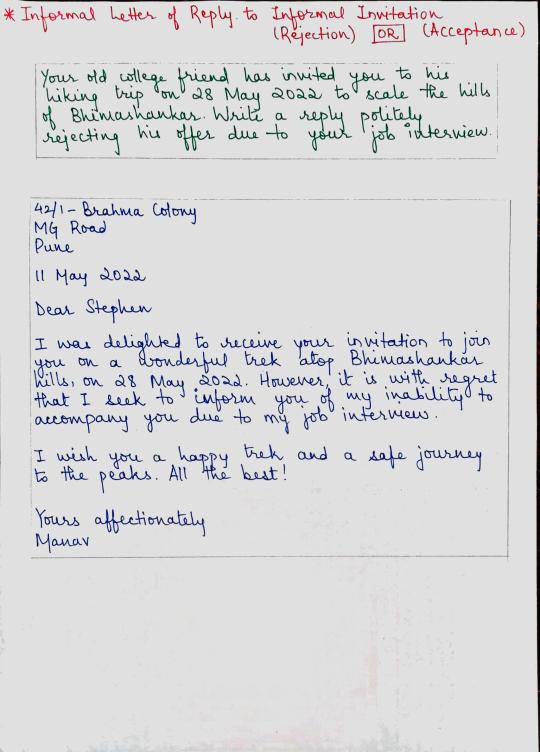 * Informal Letter of Reply to Informal Invitation
(Rejection) OR (Acceptance)
Your old college friend has invited you to his
hiking trip on 28 May 2022 to scale the hills
of Bhimashankar. Write a reply politely
rejecting his offer due to your job interview.
42/1 - Brahma Colony
MG Road
Pune
11 May 2022
Dear Stephen
I was delighted to receive your invitation to join
you on a wonderful trek atop Bhimashankar
hills, on 28 May 2022. However, it is with regret
that I seek to inform you of my inability to
accompany you due to my job interview.
I wish you a happy trek and a safe journey
to the peaks. All the best!
Yours affectionately
Manav